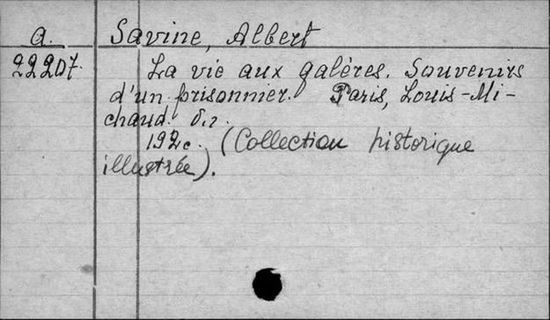 a. Savine, Albert
22207. La vie aux galères. Souvenirs
d'un prisonnier. Paris, Louis-Mi-
chaud.
192c. (Collection historique
illustrée).